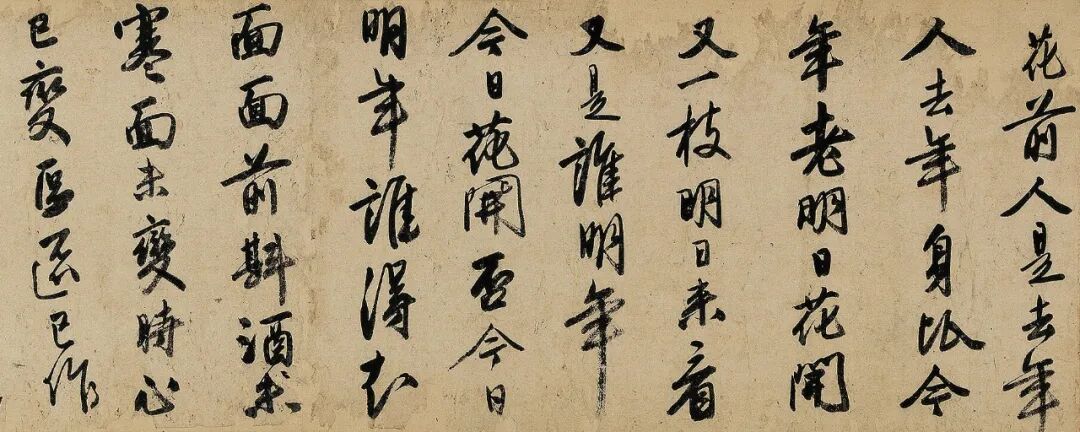 花前人是去年
人去年身比今
年老明日花開
又一枝明日來看
又是誰明年
今日花開否今日
明年誰得知
面面前斟酒未
寒面未變時心
已變區已作